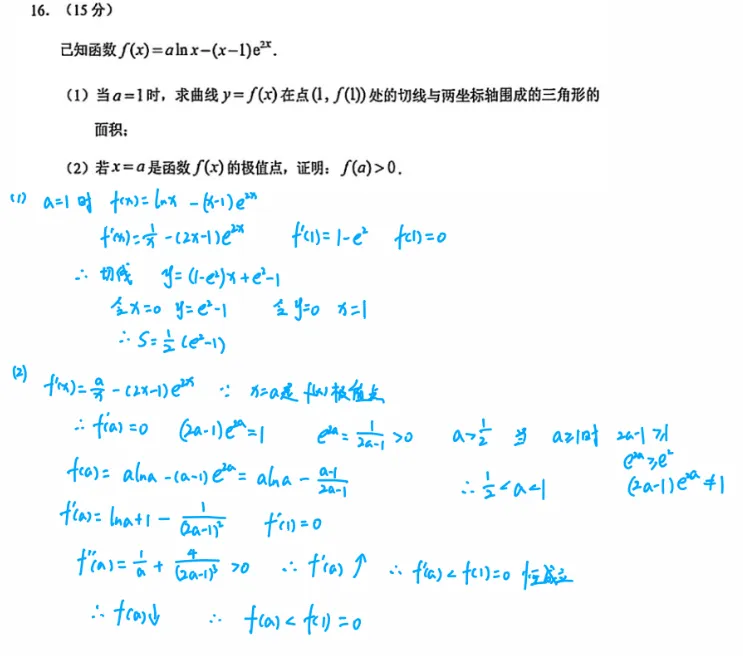 16. （15分）
已知函数 f(x)=a ln x-(x-1)e^{2x}.
（1）当 a=1 时，求曲线 y=f(x) 在点 (1, f(1)) 处的切线与两坐标轴围成的三角形的
面积；
（2）若 x=a 是函数 f(x) 的极值点，证明：f(a)>0.
(1) a=1时 f(x)=lnx-(x-1)e^{2x}
f'(x)=1/x-(2x-1)e^{2x} f'(1)=1-e² f(1)=0
∴ 切线 y=(1-e²)x+e²-1
令x=0 y=e²-1 令y=0 x=1
∴ S=1/2(e²-1)
(2) f'(x)=a/x-(2x-1)e^{2x} ∵ x=a是f(x)极值点
∴ f'(a)=0 (2a-1)e^{2a}=1 e^{2a}=1/(2a-1)>0 a>1/2 当 a≥1时 2a-1≥1
e^{2a}≥e²
f(a)=alna-(a-1)e^{2a}=alna-(a-1)/(2a-1) ∴ 1/2<a<1 (2a-1)e^{2a}≠1
f'(a)=lna+1-1/(2a-1)² f'(1)=0
f''(a)=1/a+4/(2a-1)³>0 ∴ f'(a)↑ ∴ f'(a)<f'(1)=0 恒成立
∴ f(a)↓ ∴ f(a)<f(1)=0